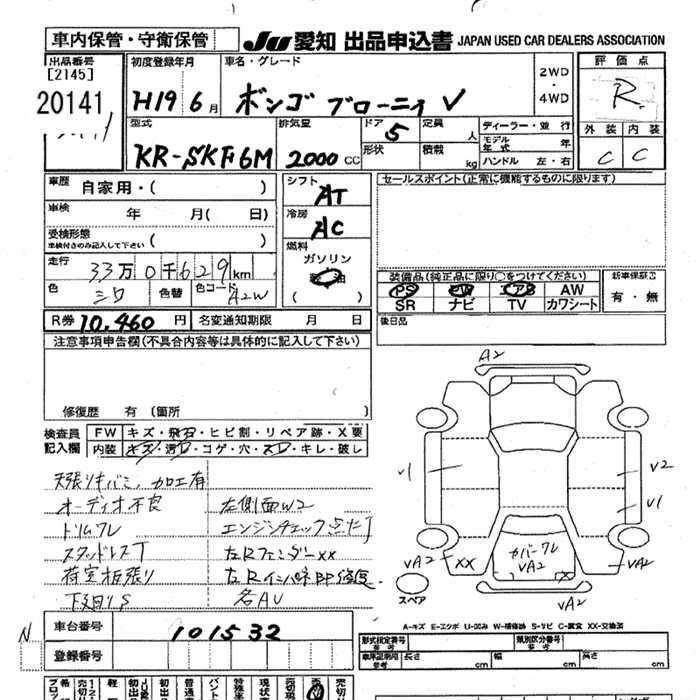 車内保管・守衛保管
JU 愛知 出品申込書 JAPAN USED CAR DEALERS ASSOCIATION
出品番号
[2145]
20141
初度登録年月
H19 6月
車名・グレード
ボンゴ ブローニィ V
2WD
・
4WD
評価点
R
外装 内装
C C
型式
KR-SKF6M
排気量
2000 CC
ドア
5
形状
定員
人
積載
kg
ディーラー・並行
モデル年式 年
ハンドル 左・右
車歴 自家用・( )
車検 年 月( 日)
受検形態
車検付きのみ記入して下さい ( )
走行 33万0千629km
色 シロ 色替 色コード A2W
シフト
AT
冷房
AC
燃料
ガソリン
( )
セールスポイント(正常に機能するものに限ります)
装備品(純正品に限り○をつけてください)
PS PW エアB AW
SR ナビ TV カワシート
新車保証書
有・無
後日品
R券 10,460円 名変通知期限 月 日
注意事項申告欄(不具合内容等は具体的に記入して下さい)
修復歴 有 (箇所 )
検査員
記入欄
FW キズ・飛石・ヒビ割・リペア跡・X要
内装 キズ・汚レ・コゲ・穴・スレ・キレ・破レ
天張リキバミ、加工有
オーディオ不良 左側面W2
トリムワレ エンジンチェック点灯
スタッドレスT 左Rフェンダーxx
荷室板張り
下廻りS 各AU
A2
V1
V2
V1
VA2
XX
カバーワレ
VA2
VA2
VA2
スペア
A-キズ E-エクボ U-凹み W-補修跡 S-サビ C-腐食 XX-交換済
N
車台番号 101532
登録番号
形式指定番号
参考
類別区分番号
参考
長さ cm 幅 cm 高さ cm